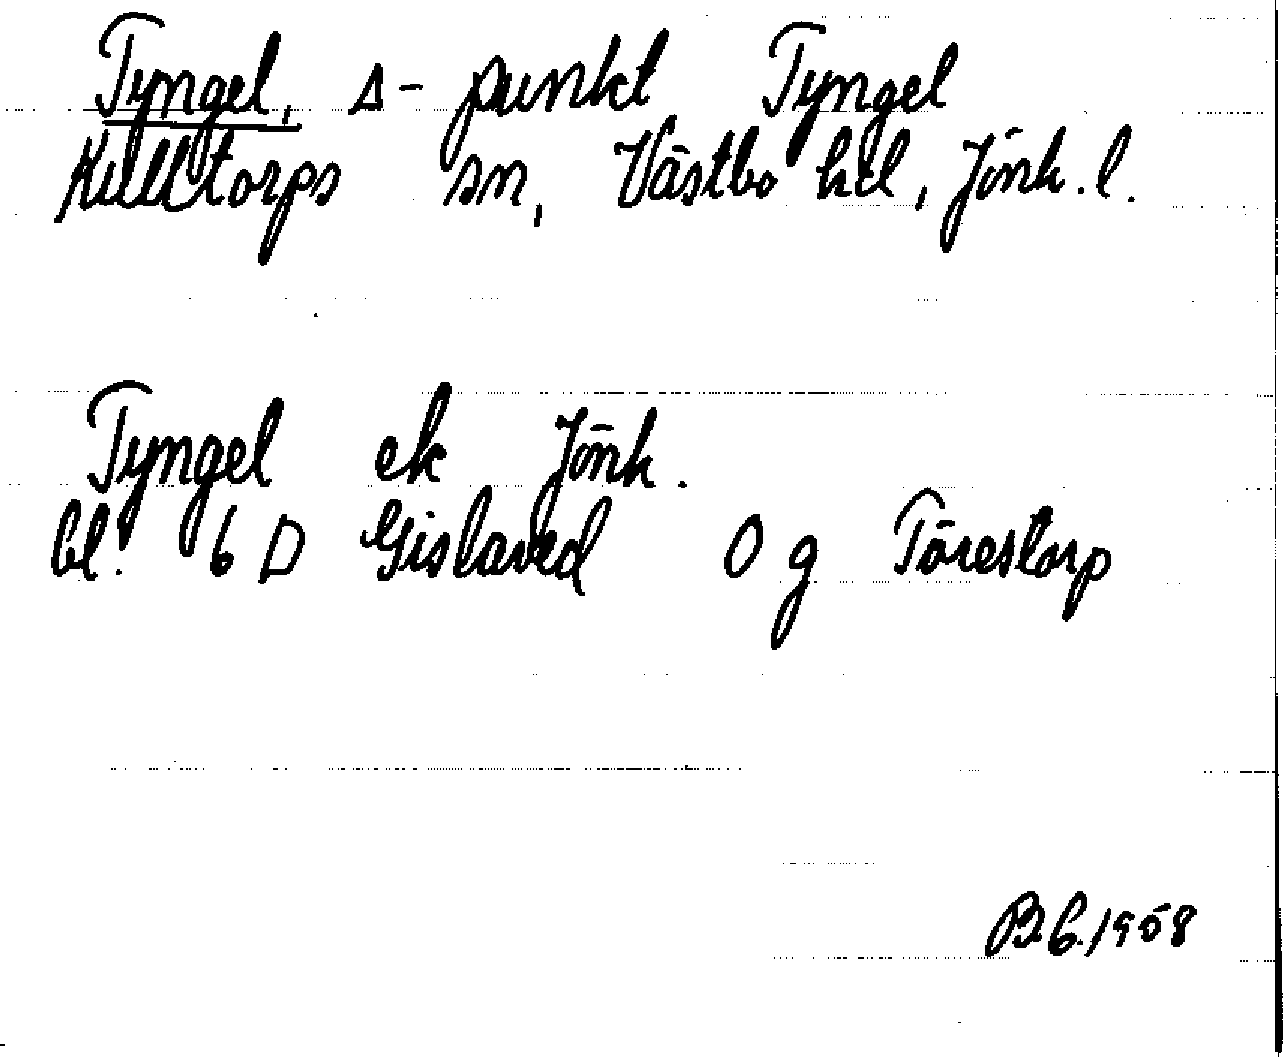 Tyngel, Δ-punkt Tyngel
Kulltorps sn, Västbo hd, Jönk. l.
Tyngel ek Jönk.
bl. 6 D Gislaved 0 g Törestorp
B.C. 1958